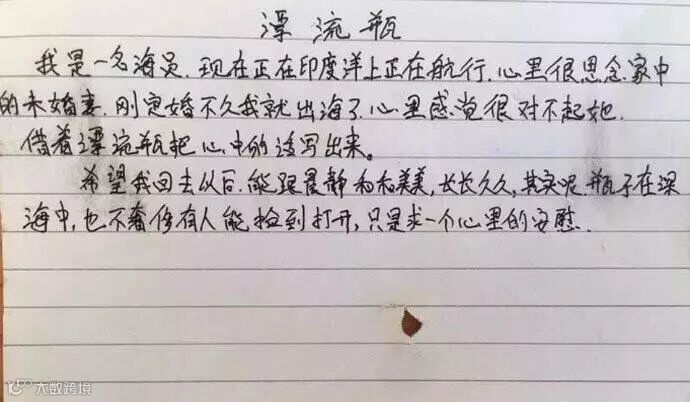 漂流瓶
我是一名海员.现在正在印度洋上正在航行.心里很思念家中
的未婚妻.刚定婚不久我就出海了.心里感觉很对不起她.
借着漂流瓶把心中的话写出来。
希望我回去以后.能跟晨静和和美美,长长久久,其实呢瓶子在深
海中,也不奢侈有人能捡到打开,只是求一个心里的安慰.
大数跨境